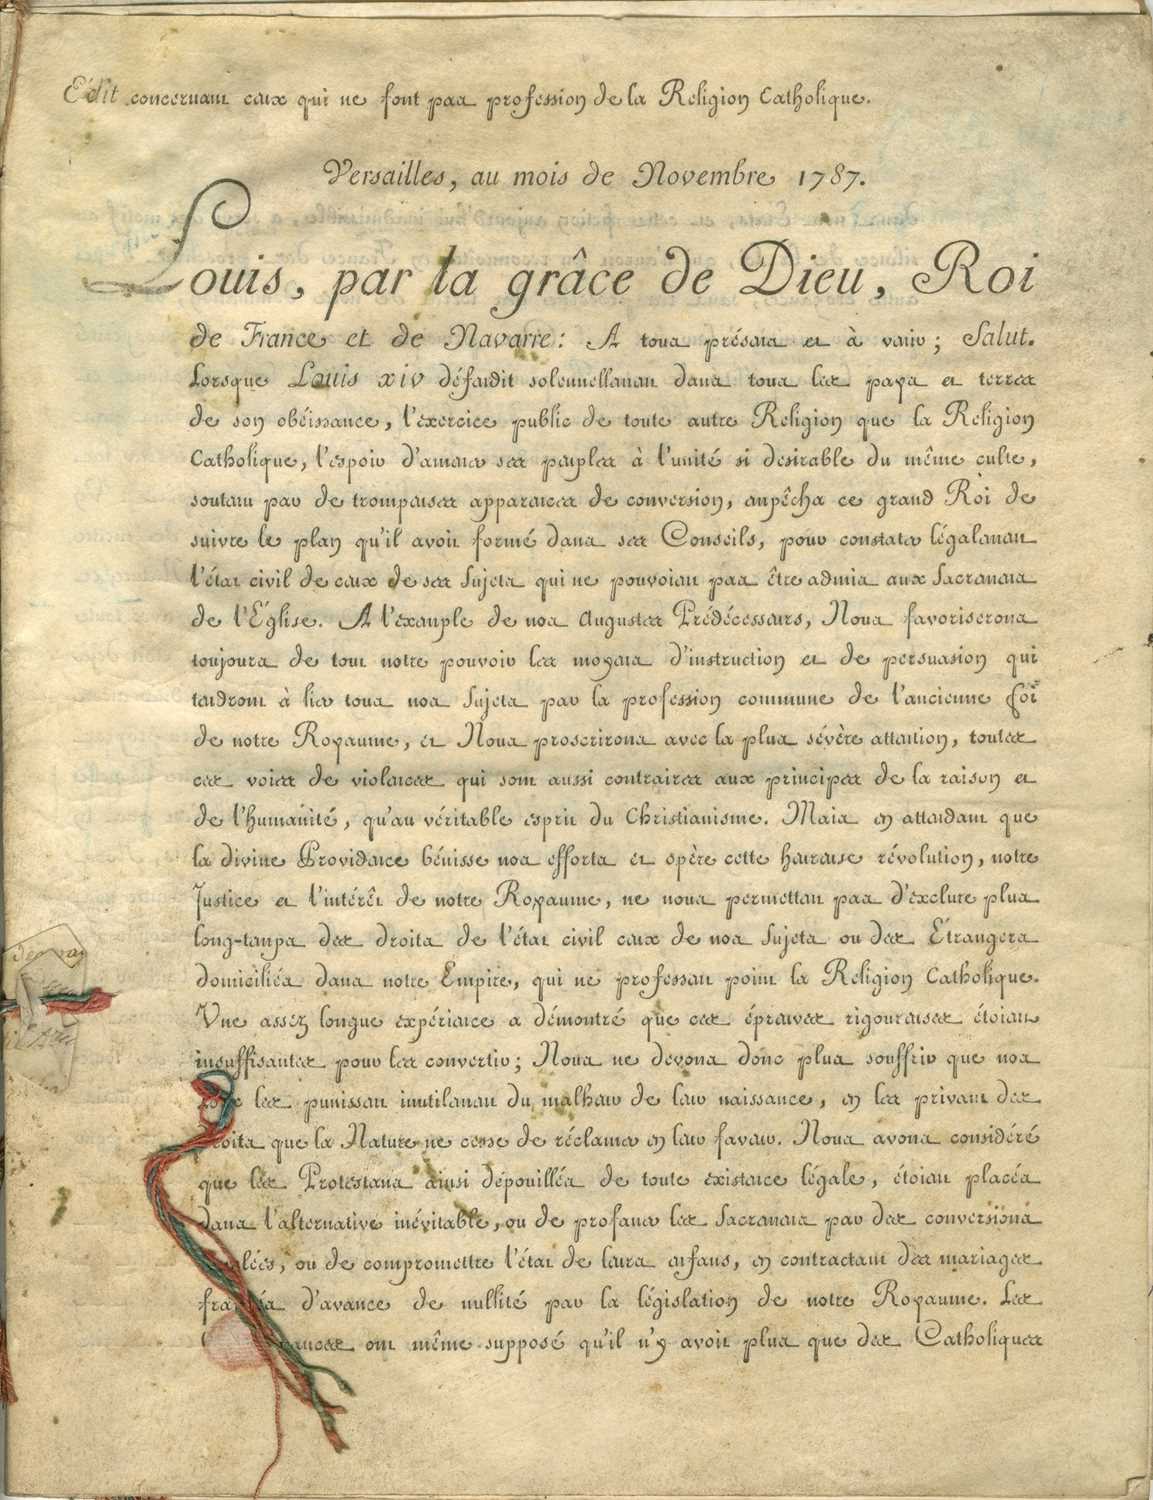 Édit concernant ceux qui ne font pas profession de la Religion Catholique.
Versailles, au mois de Novembre 1787.
Louis, par la grâce de Dieu, Roi
de France et de Navarre: A tous présens et à venir; Salut.
Lorsque Louis XIV défendit solennellement dans tous les pays et terres
de son obéissance, l'exercice public de toute autre Religion que la Religion
Catholique, l'espoir d'amener ses peuples à l'unité si desirable du même culte,
soutenu par de trompeuses apparences de conversion, empêcha ce grand Roi de
suivre le plan qu'il avoit formé dans ses Conseils, pour constater légalement
l'état civil de ceux de ses Sujets qui ne pouvoient pas être admis aux Sacremens
de l'Église. A l'exemple de nos Augustes Prédécesseurs, Nous favoriserons
toujours de tout notre pouvoir les moyens d'instruction et de persuasion qui
tendront à lier tous nos Sujets par la profession commune de l'ancienne foi
de notre Royaume, et Nous proscrirons avec la plus sévère attention, toutes
ces voies de violences qui sont aussi contraires aux principes de la raison et
de l'humanité, qu'au véritable esprit du Christianisme. Mais en attendant que
la divine Providence bénisse nos efforts et opère cette heureuse révolution, notre
Justice et l'intérêt de notre Royaume, ne nous permettent pas d'exclure plus
long-temps des droits de l'état civil ceux de nos Sujets ou des Étrangers
domiciliés dans notre Empire, qui ne professent point la Religion Catholique.
Une assez longue expérience a démontré que ces épreuves rigoureuses étoient
insuffisantes pour les convertir; Nous ne devons donc plus souffrir que nos
Loix les punissent inutilement du malheur de leur naissance, en les privant des
droits que la Nature ne cesse de réclamer en leur faveur. Nous avons considéré
que les Protestans ainsi dépouillés de toute existence légale, étoient placés
dans l'alternative inévitable, ou de profaner les Sacremens par des conversions
simulées, ou de compromettre l'état de leurs enfans, en contractant des mariages
frappés d'avance de nullité par la législation de notre Royaume. Les
ont même supposé qu'il n'y avoit plus que des Catholiques